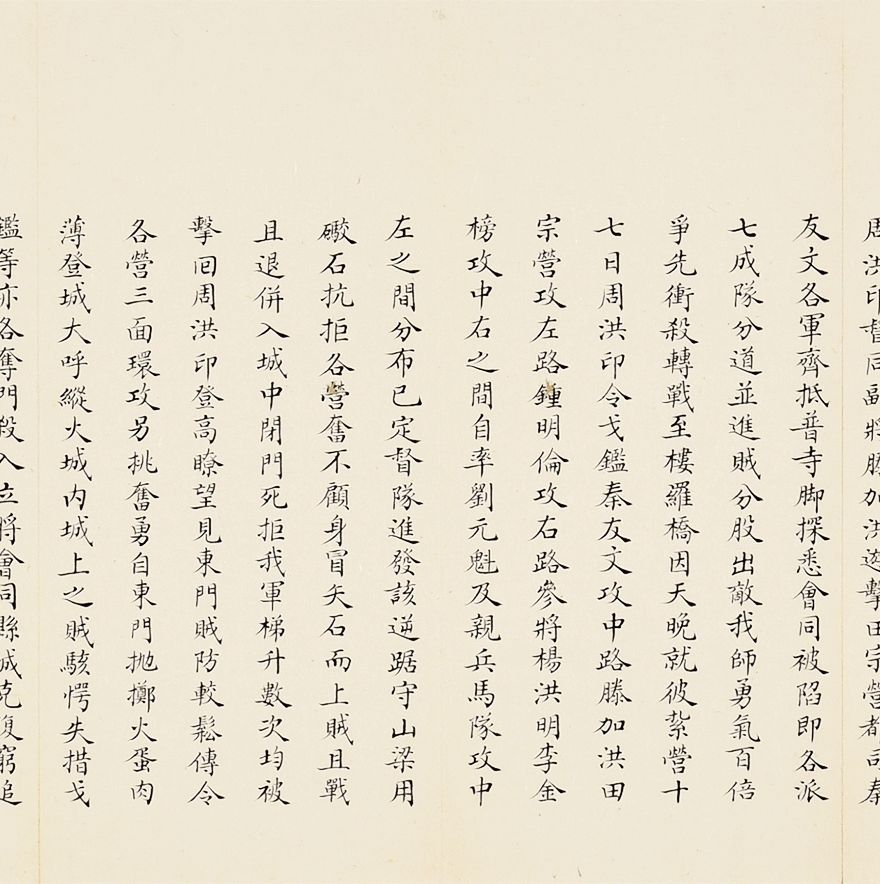 周洪印督同副將滕加洪遊擊田宗營都司秦
友文各軍齊抵普寺脚探悉會同被陷即各派
七成隊分道並進賊分股出敵我師勇氣百倍
爭先衝殺轉戰至樓羅橋因天晚就彼紮營十
七日周洪印令戈鑑秦友文攻中路滕加洪田
宗營攻左路鍾明倫攻右路參將楊洪明李金
榜攻中右之間自率劉元魁及親兵馬隊攻中
左之間分布已定督隊進發該逆踞守山梁用
礮石抗拒各營奮不顧身冒矢石而上賊且戰
且退併入城中閉門死拒我軍梯升數次均被
擊回周洪印登高瞭望見東門賊防較鬆傳令
各營三面環攻另挑奮勇自東門拋擲火蛋肉
薄登城大呼縱火城内城上之賊駭愕失措戈
鑑等亦各奪門殺入立將會同縣城克復窮追